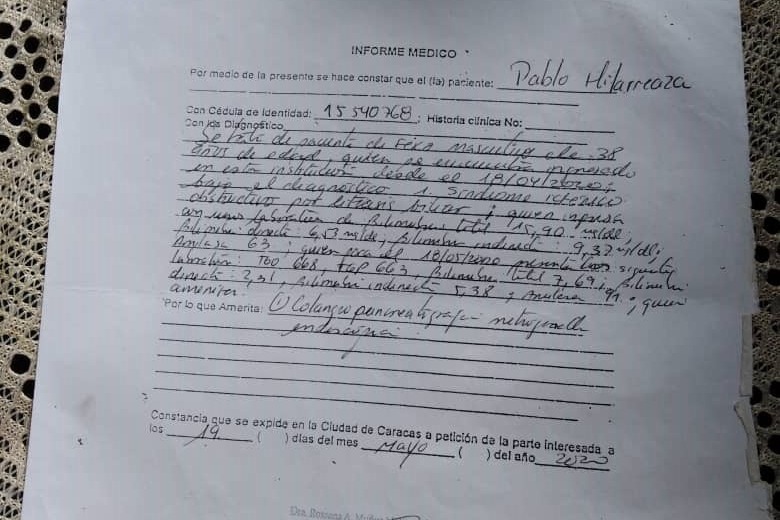 INFORME MEDICO
Por medio de la presente se hace constar que el (la) paciente: Pablo Hilarreaza
Con Cédula de Identidad: 15 540768 ; Historia clínica No:
Con los Diagnóstico
Se trata de paciente de sexo masculino de 38
años de edad, quien se encuentra ingresado
en esta institución desde el 18/04/2020,
bajo el diagnóstico 1. Síndrome ictérico
obstructivo por litiasis biliar ; quien ingresa
con laboratorios de Bilirrubina total 15,90 mg/dl,
Bilirrubina directa: 6,53 mg/dl, Bilirrubina indirecta: 9,37 mg/dl;
Amilasa 63 ; quien para el 18/05/2020 presenta siguiente
laboratorio: TGO 668, TGP 663, Bilirrubina total 7,69, Bilirrubina
directa: 2,31, Bilirrubina indirecta 5,38 ; Amilasa 91 ; quien
amerita.
Por lo que Amerita: ① Colangio pancreatografia retrograda
endoscopica
Constancia que se expide en la Ciudad de Caracas a petición de la parte interesada a
los 19 ( ) días del mes Mayo ( ) del año 2020
Dra. Rossana A. Muñoz